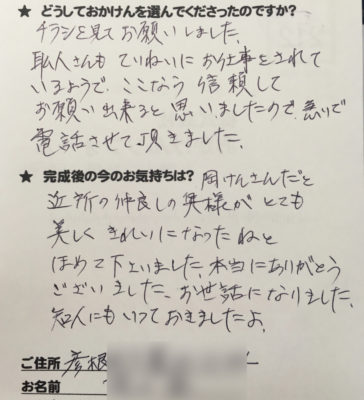 ★ どうしておかけんを選んでくださったのですか?
チラシを見てお願いしました。
職人さんもていねいにお仕事をされて
いるようで、ここなら信頼して
お願い出来ると思いましたので、急いで
電話させて頂きました。
★ 完成後の今のお気持ちは? 岡けんさんだと
近所の仲良しの奥様がとても
美しくきれいになったねと
ほめて下さいました。本当にありがとう
ございました。お世話になりました。
知人にもいっておきましたよ。
ご住所 彦根
お名前